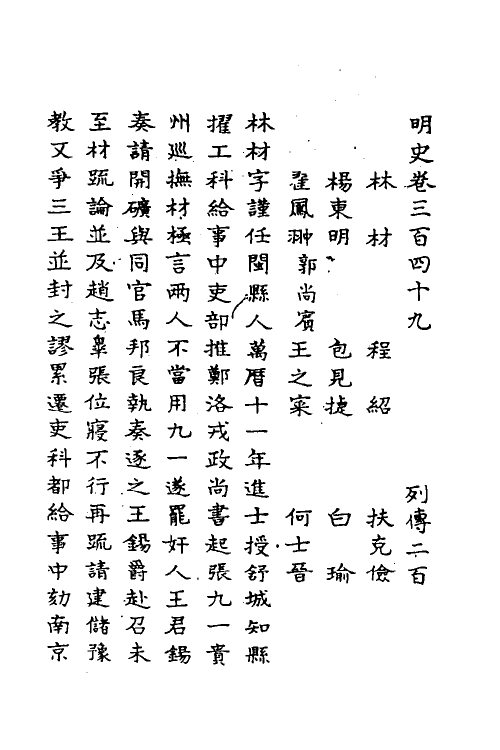 明史卷三百四十九 列傳二百
林材 程紹 扶克儉
楊東明 包見捷 白瑜
翟鳳翀郭尚賓王之寀 何士晉
林材字謹任閩縣人萬曆十一年進士授舒城知縣
擢工科給事中吏部推鄭洛戎政尚書起張九一貴
州巡撫材極言兩人不當用九一遂罷奸人王君錫
奏請開礦與同官馬邦良執奏逐之王錫爵赴召未
至材疏論並及趙志皐張位寢不行再疏請建儲豫
教又爭三王並封之謬累遷吏科都給事中劾南京